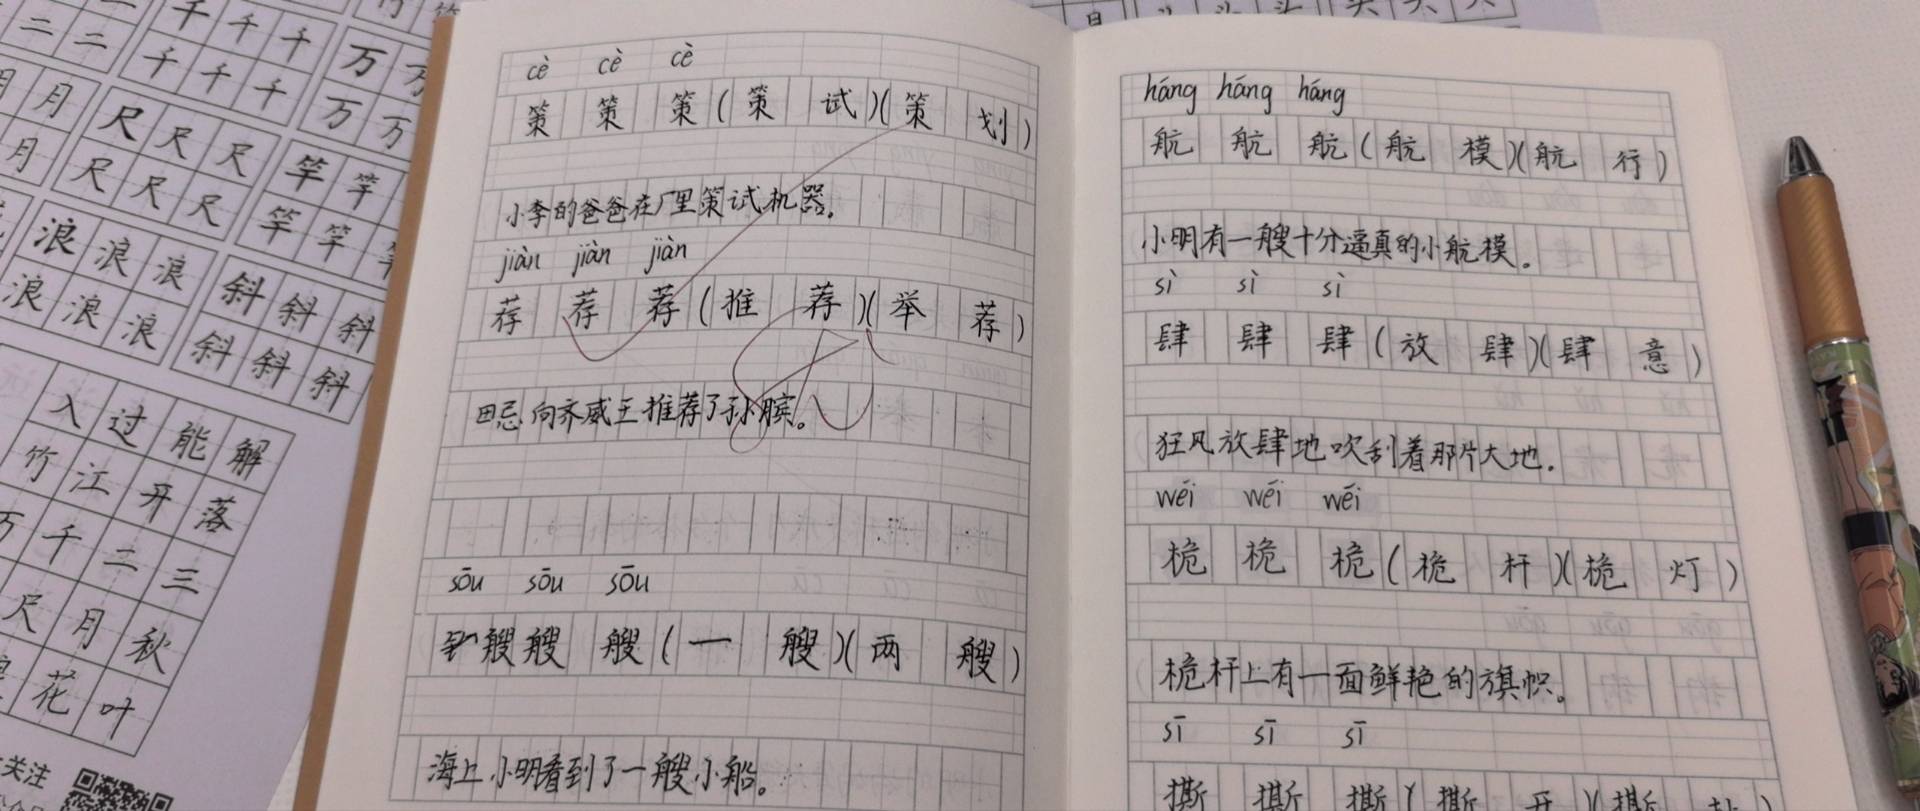 二 二
千 千 千
千 千 千
万 万
万 万
月
月
尺 尺 尺
尺 尺 尺
竿 竿
竿 竿 竿
浪 浪 浪
浪 浪 浪
斜 斜 斜
斜 斜 斜
入 过 能 解
竹 江 开 落
万 千 二 三
尺 月 秋
花 叶
关注
cè cè cè
策 策 策(策 试)(策 划)
小李的爸爸在厂里策试机器。
jiàn jiàn jiàn
荐 荐 荐(推 荐)(举 荐)
田忌向齐威王推荐了孙膑。
sōu sōu sōu
艘 艘 艘(一 艘)(两 艘)
海上小明看到了一艘小船。
háng háng háng
航 航 航(航 模)(航 行)
小明有一艘十分逼真的小航模。
sì sì sì
肆 肆 肆(放 肆)(肆 意)
狂风放肆地吹刮着那片大地.
wéi wéi wéi
桅 桅 桅(桅 杆)(桅 灯)
桅杆上有一面鲜艳的旗帜。
sī sī sī
撕 撕 撕(撕 开)(撕